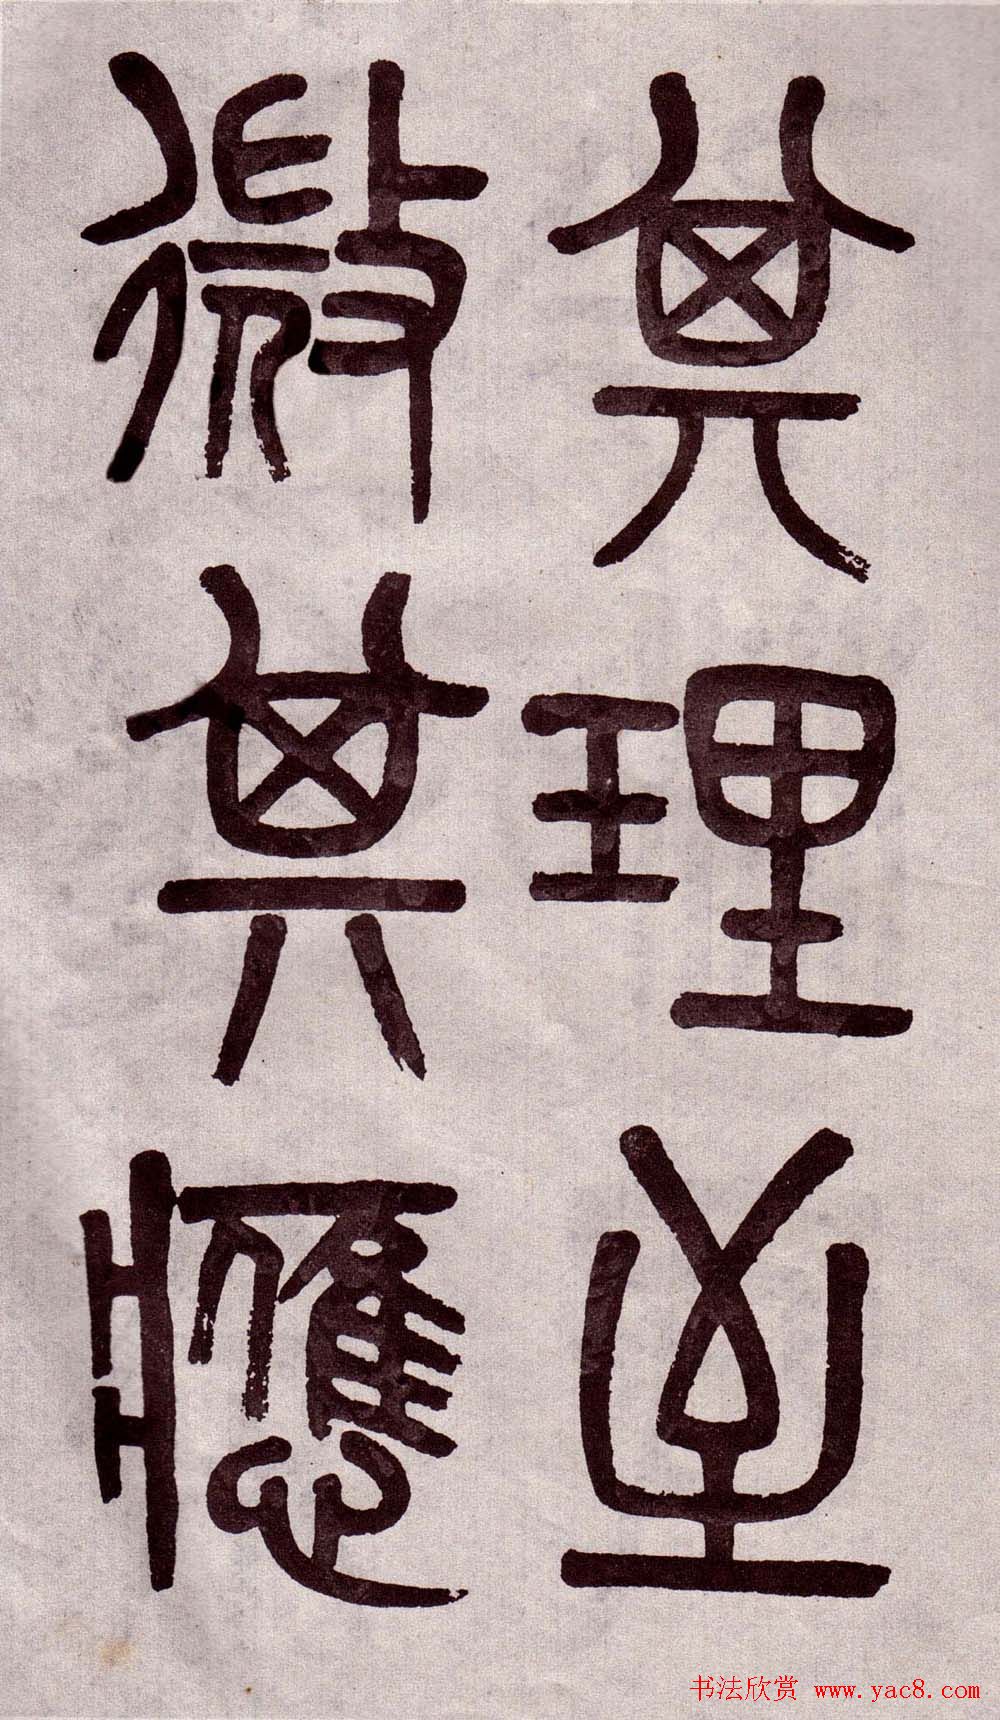 其理至
微其應
书法欣赏 www.yac8.com